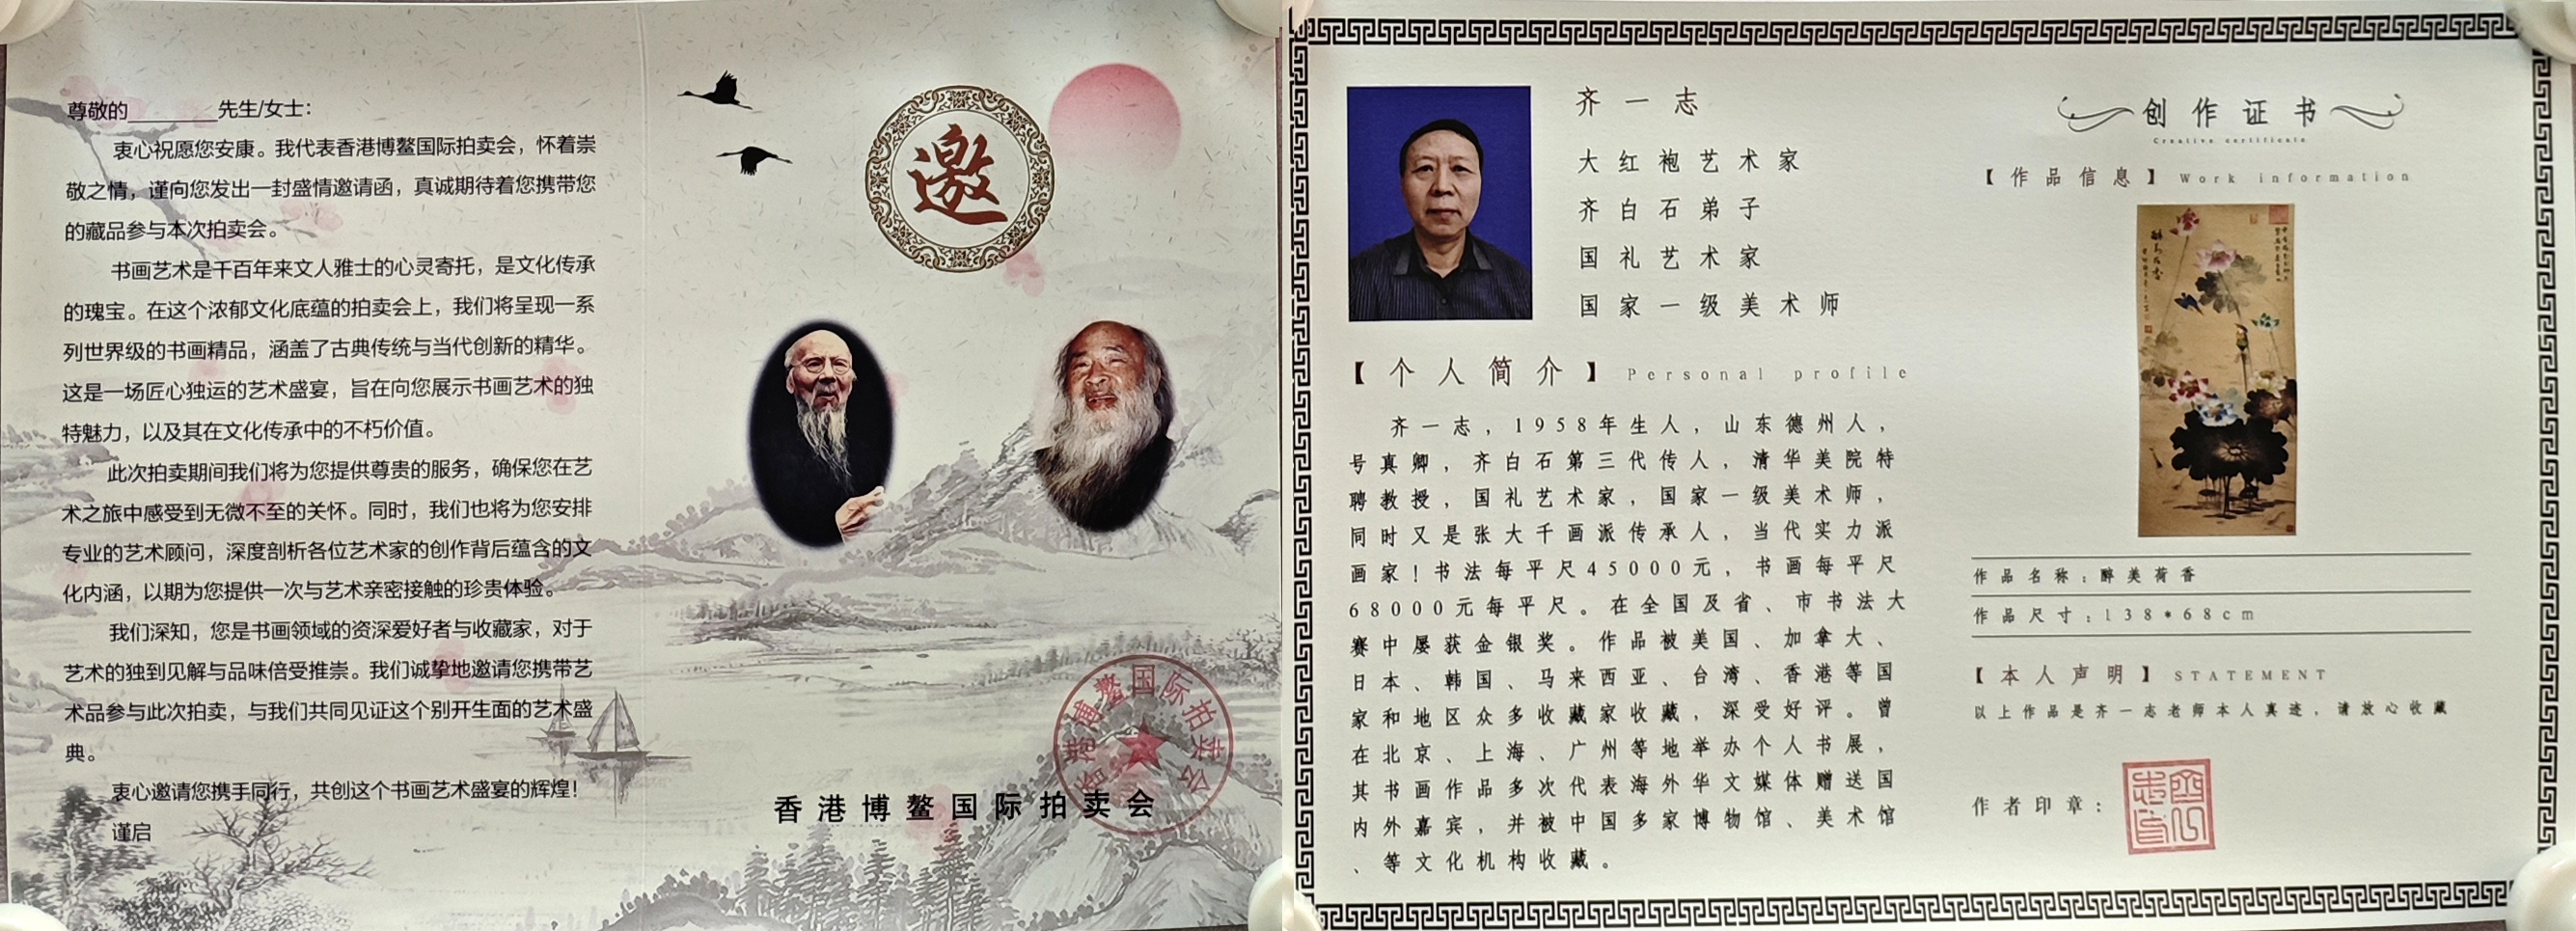 尊敬的________先生/女士：
衷心祝愿您安康。我代表香港博鳌国际拍卖会，怀着崇
敬之情，谨向您发出一封盛情邀请函，真诚期待着您携带您
的藏品参与本次拍卖会。
书画艺术是千百年来文人雅士的心灵寄托，是文化传承
的瑰宝。在这个浓郁文化底蕴的拍卖会上，我们将呈现一系
列世界级的书画精品，涵盖了古典传统与当代创新的精华。
这是一场匠心独运的艺术盛宴，旨在向您展示书画艺术的独
特魅力，以及其在文化传承中的不朽价值。
此次拍卖期间我们将为您提供尊贵的服务，确保您在艺
术之旅中感受到无微不至的关怀。同时，我们也将为您安排
专业的艺术顾问，深度剖析各位艺术家的创作背后蕴含的文
化内涵，以期为您提供一次与艺术亲密接触的珍贵体验。
我们深知，您是书画领域的资深爱好者与收藏家，对于
艺术的独到见解与品味倍受推崇。我们诚挚地邀请您携带艺
术品参与此次拍卖，与我们共同见证这个别开生面的艺术盛
典。
衷心邀请您携手同行，共创这个书画艺术盛宴的辉煌！
谨启
邀
香港博鳌国际拍卖会
香港博鳌国际拍卖会
齐一志
大红袍艺术家
齐白石弟子
国礼艺术家
国家一级美术师
【个人简介】Personal profile
齐一志，1958年生人，山东德州人，
号真卿，齐白石第三代传人，清华美院特
聘教授，国礼艺术家，国家一级美术师，
同时又是张大千画派传承人，当代实力派
画家！书法每平尺45000元，书画每平尺
68000元每平尺。在全国及省、市书法大
赛中屡获金银奖。作品被美国、加拿大、
日本、韩国、马来西亚、台湾、香港等国
家和地区众多收藏家收藏，深受好评。曾
在北京、上海、广州等地举办个人书展，
其书画作品多次代表海外华文媒体赠送国
内外嘉宾，并被中国多家博物馆、美术馆
、等文化机构收藏。
创作证书
Creative certificate
【作品信息】Work information
作品名称：醉美荷香
作品尺寸：138*68cm
【本人声明】STATEMENT
以上作品是齐一志老师本人真迹，请放心收藏
作者印章：